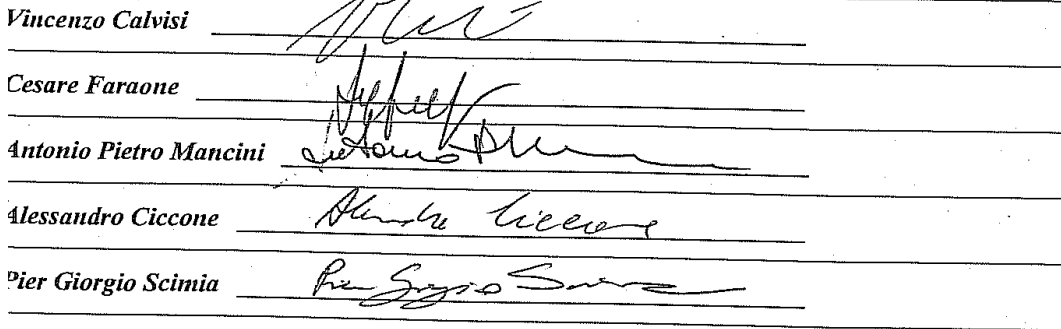 Vincenzo Calvisi
Cesare Faraone
Antonio Pietro Mancini Antonio
Alessandro Ciccone Ciccone
Pier Giorgio Scimia Pier Giorgio